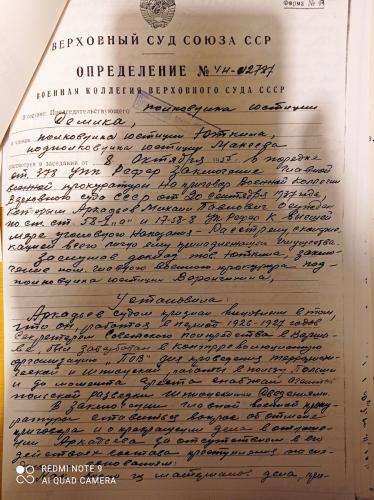 Форма № 
ВЕРХОВНЫЙ СУД СОЮЗА ССР
ОПРЕДЕЛЕНИЕ № 4н-02727
ВОЕННАЯ КОЛЛЕГИЯ ВЕРХОВНОГО СУДА СССР
в составе: Председательствующего полковника юстиции
Демика,
и членов полковника юстиции Юткина,
подполковника юстиции Макеева
рассмотрев в заседании от 8 октября 1957 г. в порядке
ст. 378 УПК РСФСР Заключение Главной
военной прокуратуры на приговор Военной Коллегии
Верховного суда СССР от 20 сентября 1937 года
которым Аркадьев Михаил Павлович осужден
по ст. ст. 58-1, и 17-58-8 УК РСФСР к высшей
мере уголовного наказания - расстрелу с конфис-
кацией всего лично ему принадлежащего имущества.
Заслушав доклад тов. Юткина, заклю-
чение пом. главного военного прокурора под-
полковника юстиции
Установила:
Аркадьев судом признан виновным в том,
что он, работая в период 1926-1927 годов
секретарем советского полпредства в Варша-
ве, был завербован в контрреволюционную
организацию "ПОВ" для проведения террористи-
ческой и шпионской работы в пользу Польши
и до момента ареста снабжал агентов
польской разведки шпионскими сведениями.
В заключении Главной военной проку-
ратуры ставится вопрос об отмене
приговора и о прекращении дела в отноше-
нии Аркадьева за отсутствием в его
действиях состава преступления по сле-
дующим основаниям:
из материалов дела,
REDMI NOTE 9
AI QUAD CAMERA